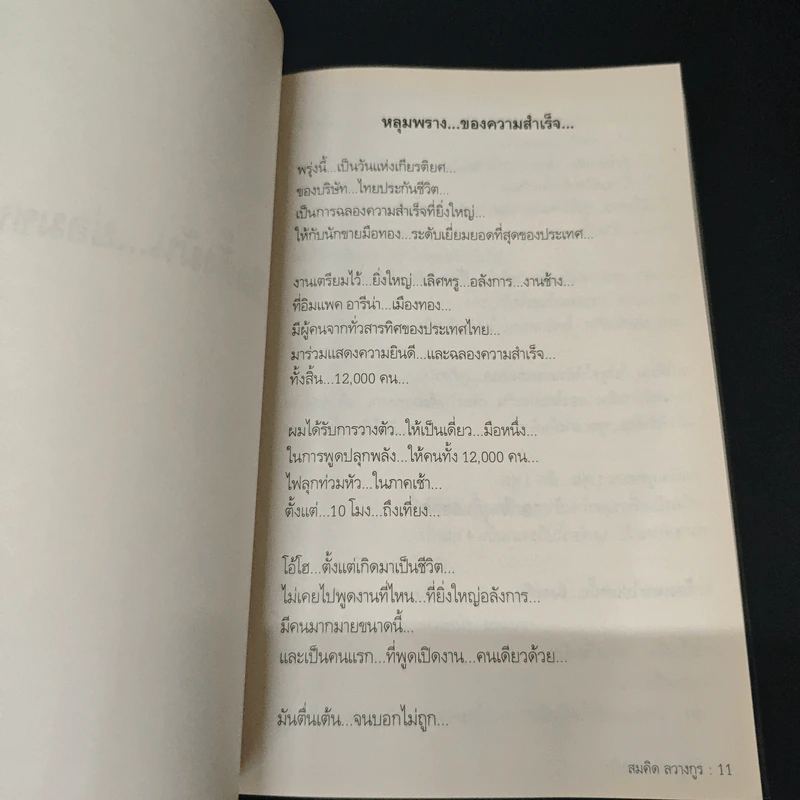 หลุมพราง...ของความสำเร็จ...
พรุ่งนี้...เป็นวันแห่งเกียรติยศ...
ของบริษัท...ไทยประกันชีวิต...
เป็นการฉลองความสำเร็จที่ยิ่งใหญ่...
ให้กับนักขายมือทอง...ระดับเยี่ยมยอดที่สุดของประเทศ...
งานเตรียมไว้...ยิ่งใหญ่...เลิศหรู...อลังการ...งานช้าง...
ที่อิมแพค อารีน่า...เมืองทอง...
มีผู้คนจากทั่วสารทิศของประเทศไทย...
มาร่วมแสดงความยินดี...และฉลองความสำเร็จ...
ทั้งสิ้น...12,000 คน...
ผมได้รับการวางตัว...ให้เป็นเดี่ยว...มือหนึ่ง...
ในการพูดปลุกพลัง...ให้คนทั้ง 12,000 คน...
ไฟลุกท่วมหัว...ในภาคเช้า...
ตั้งแต่...10 โมง...ถึงเที่ยง...
โอ้โฮ...ตั้งแต่เกิดมาเป็นชีวิต...
ไม่เคยไปพูดงานที่ไหน...ที่ยิ่งใหญ่อลังการ...
มีคนมากมายขนาดนี้...
และเป็นคนแรก...ที่พูดเปิดงาน...คนเดียวด้วย...
มันตื่นเต้น...จนบอกไม่ถูก...
สมคิด ลวางกูร : 11